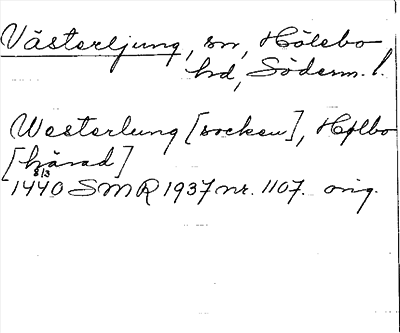 Västerljung, sn, Hölebo
hd, Söderm. l.
Westerlung [socken], Hølbo
[härad]
8/3
1440 SMR 1937 nr. 1107. orig.